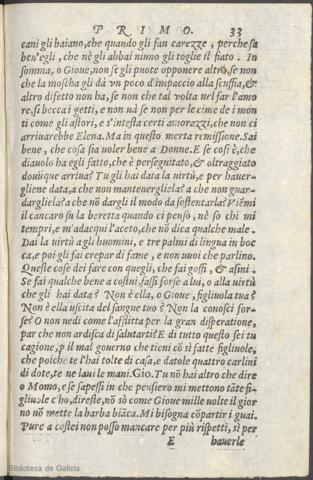 PRIMO. 33
cani gli baiano, che quando gli fan carezze, perche sa
ben'egli, che nè gli abbai niuno gli toglie il fiato. In
somma, o Gioue, non se gli puote opponere altro, se non
che la moscha gli dà vn poco d'impaccio alla scuffia, &
altro difetto non ha, se non che tal volta nel far l'amo
re, si becca i geti, e non uà se non per le cime de i mon
ti come gli astori, e s'intesta certi amorazzi, che non ci
arriuarebbe Elena. Ma in questo merta remissione. Sai
bene, che cosa sia uoler bene a Donne. E se cosi è, che
diauolo ha egli fatto, che è perseguitato, & oltraggiato
douūque arriua? Tu gli hai data la uirtù, e per hauer-
gliene data, a che non mantenergliela? a che non guar-
dargliela? a che nō dargli il modo da sostentarla? Viēmi
il cancaro su la beretta quando ci penso, nè so chi mi
tempri, e m'adacqui l'aceto, che nō dica qualche male.
Dai la uirtù agli huomini, e tre palmi di lingua in boc
ca, e poi gli fai crepar di fame, e non uuoi che parlino.
Queste cose dei fare con quegli, che fai goffi, & asini.
Se fai qualche bene a costui, fassi forse a lui, o alla uirtù
che gli hai data? Non è ella, o Gioue, figliuola tua?
Non è ella uscita del sangue tuo? Non la conosci for-
se? O non uedi come l'afflitta per la gran disperatione,
par che non ardisca di salutarti? E di tutto questo sei tu
cagione, p il mal gouerno che tieni cō sì fatte figliuole,
che poiche te l'hai tolte di casa, e datole quattro carlini
di dote, te ne laui le mani. Gio. Tu nō hai altro che dire
o Momo, e se sapessi in che pensiero mi mettono tāte fi-
gliuole c'ho, direste, nō so come Gioue mille uolte il gior
no nō mette la barba biāca. Mi bisogna cōpartir i guai.
Pure a costei non posso mancare per più rispetti, sì per
E hauerle
Biblioteca de Galicia